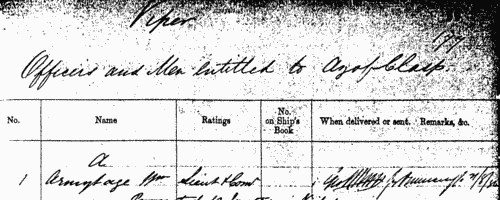 Viper
177
Officers and Men entitled to Azof Clasp.
No. Name Ratings No. on Ship's Book When delivered or sent. Remarks, &c.
A
1 Armytage Wm Lieut & Comr